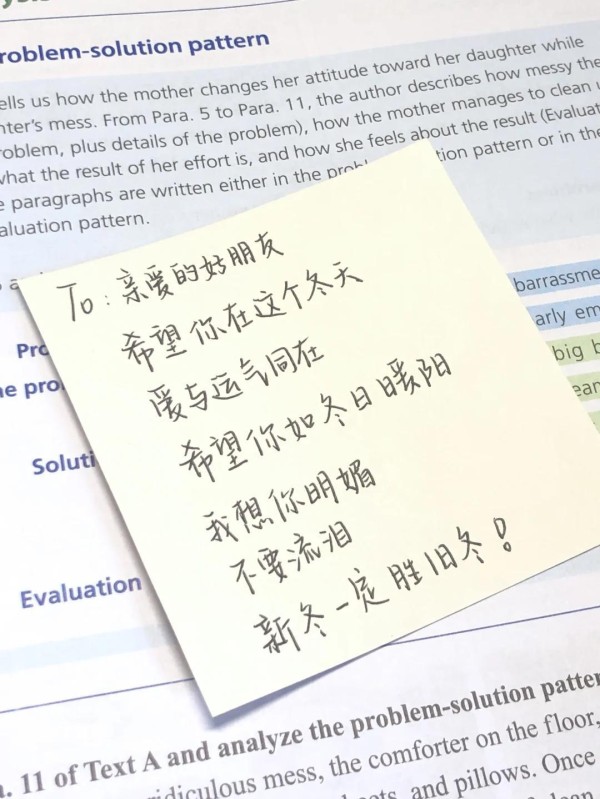 roblem-solution pattern
ells us how the mother changes her attitude toward her daughter while
hter's mess. From Para. 5 to Para. 11, the author describes how messy the
roblem, plus details of the problem), how the mother manages to clean u
what the result of her effort is, and how she feels about the result (Evaluat
e paragraphs are written either in the prob tion pattern or in the
aluation pattern.
To: 亲爱的好朋友
希望你在这个冬天
爱与运气同在
希望你如冬日暖阳
我想你明媚
不要流泪
新冬一定胜旧冬!
barrassme
arly em
big b
ean
Pro
e pro
Soluti
Evaluation
. 11 of Text A and analyze the problem-solution patter
ridiculous mess, the comforter on the floor,
and pillows. Once